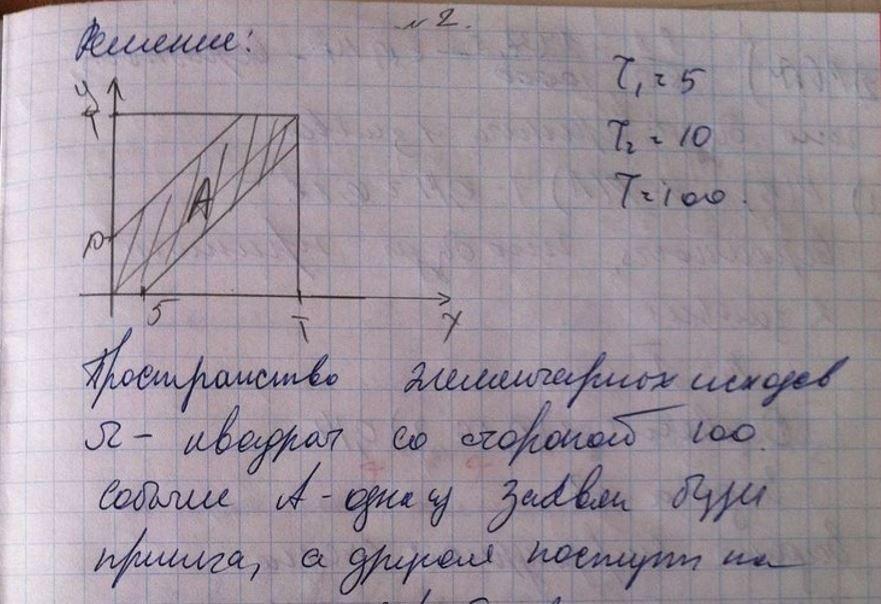 №2.
Решение:
τ₁ = 5
τ₂ = 10
T = 100.
y
T
10
A
5
T
x
Пространство элементарных исходов
Ω - квадрат со стороной 100.
Событие А - одна из заявок буди
принята, а другая поступит на